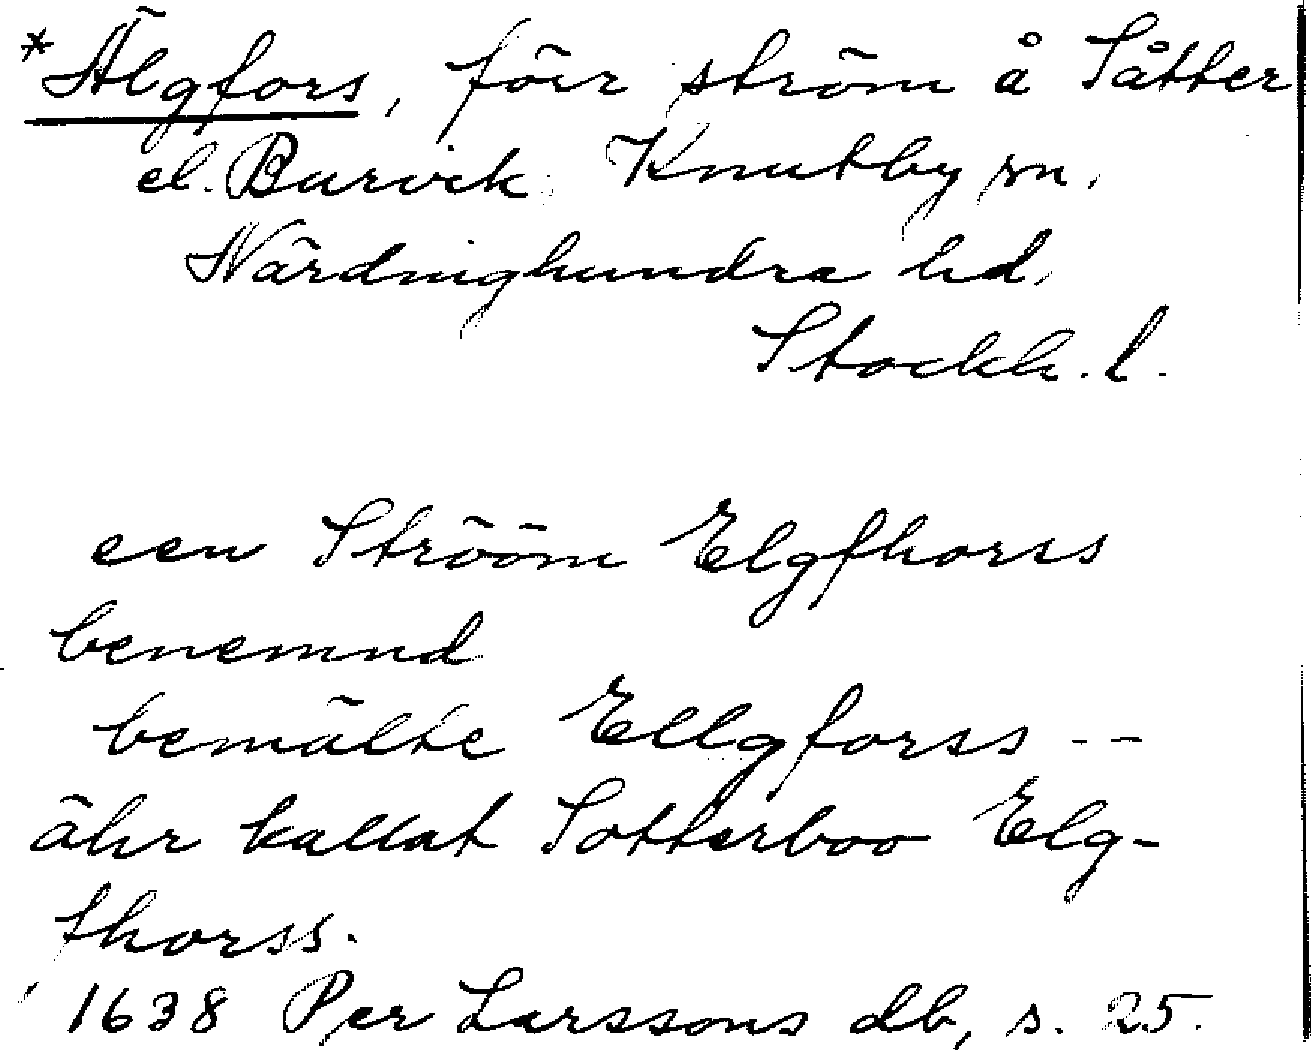 *Älgfors, förr ström å Såtter
el. Burvik Knutby sn,
Närdinghundra hd,
Stockh. l.
een Strööm Elgfhorss
benemnd
bemälte Ellgforss --
ähr kallat Sotterboo Elg-
fhorss.
1638 Per Larssons db, s. 25.